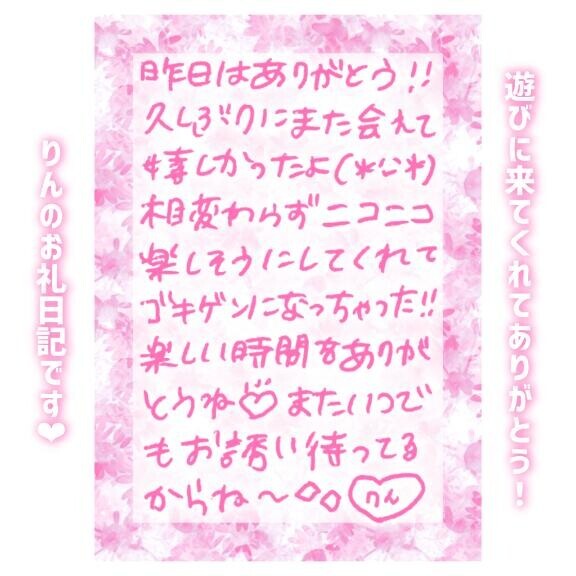 遊びに来てくれてありがとう！
昨日はありがとう!!
久しぶりにまた会えて
嬉しかったよ(*^^*)
相変わらずニコニコ
楽しそうにしてくれて
ゴキゲンになっちゃった!!
楽しい時間をありが
とうね♡またいつで
もお誘い待ってる
からね〜◇◇ りん
りんのお礼日記です❤